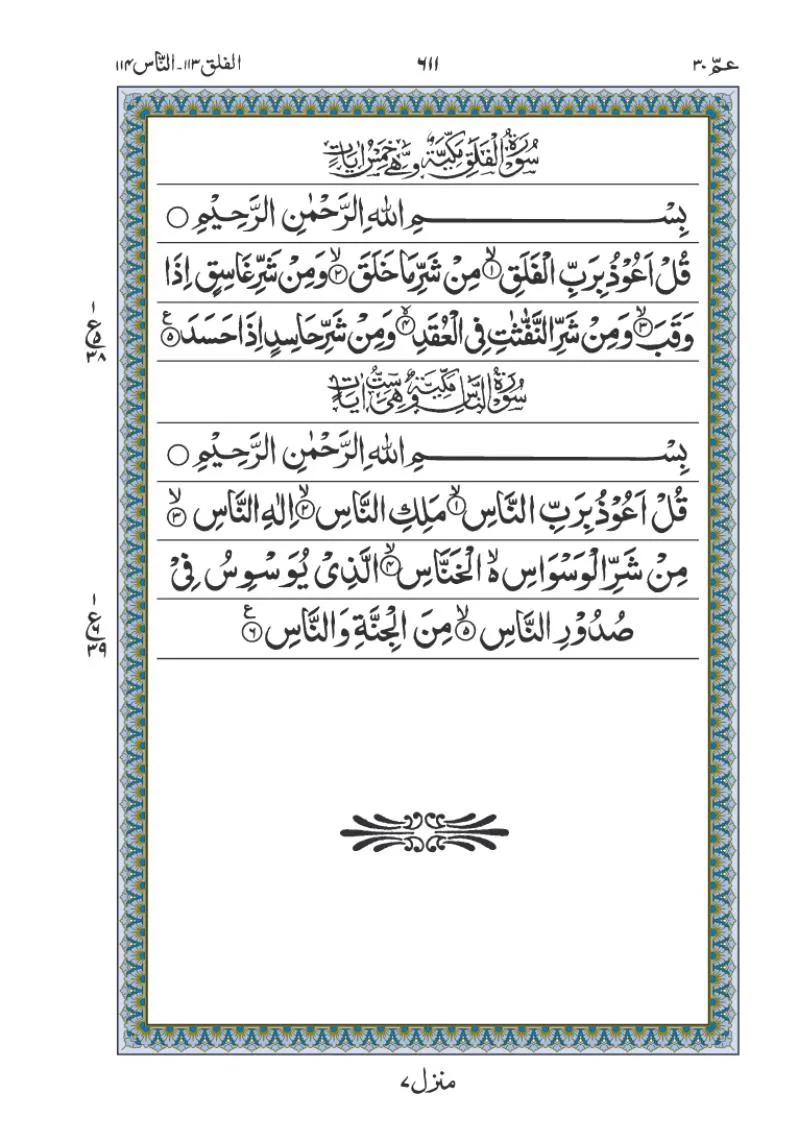 عمّ ۳۰
۶۱۱
الفلق ۱۱۳ - النّاس ۱۱۴
سُوْرَةُ الْفَلَقِ مَكِّيَّةٌ وَّهِيَ خَمْسُ اٰيَاتٍ
بِسْــــــــــــمِ اللّٰهِ الرَّحْمٰنِ الرَّحِيْمِ ○
قُلْ اَعُوْذُ بِرَبِّ الْفَلَقِ ۙ﴿۱﴾ مِنْ شَرِّ مَا خَلَقَ ۙ﴿۲﴾ وَمِنْ شَرِّ غَاسِقٍ اِذَا
وَقَبَ ۙ﴿۳﴾ وَمِنْ شَرِّ النَّفّٰثٰتِ فِی الْعُقَدِ ۙ﴿۴﴾ وَمِنْ شَرِّ حَاسِدٍ اِذَا حَسَدَ ﴿۵﴾ ع
۱
ع ۵
۳۸
سُوْرَةُ النَّاسِ مَكِّيَّةٌ وَّهِيَ سِتُّ اٰيَاتٍ
بِسْــــــــــــمِ اللّٰهِ الرَّحْمٰنِ الرَّحِيْمِ ○
قُلْ اَعُوْذُ بِرَبِّ النَّاسِ ۙ﴿۱﴾ مَلِكِ النَّاسِ ۙ﴿۲﴾ اِلٰهِ النَّاسِ ۙ﴿۳﴾
مِنْ شَرِّ الْوَسْوَاسِ ۙ۬ الْخَنَّاسِ ۙ﴿۴﴾ الَّذِیْ یُوَسْوِسُ فِیْ
صُدُوْرِ النَّاسِ ۙ﴿۵﴾ مِنَ الْجِنَّةِ وَالنَّاسِ ﴿۶﴾ ع
۱
ع ۶
۳۹
منزل ۷